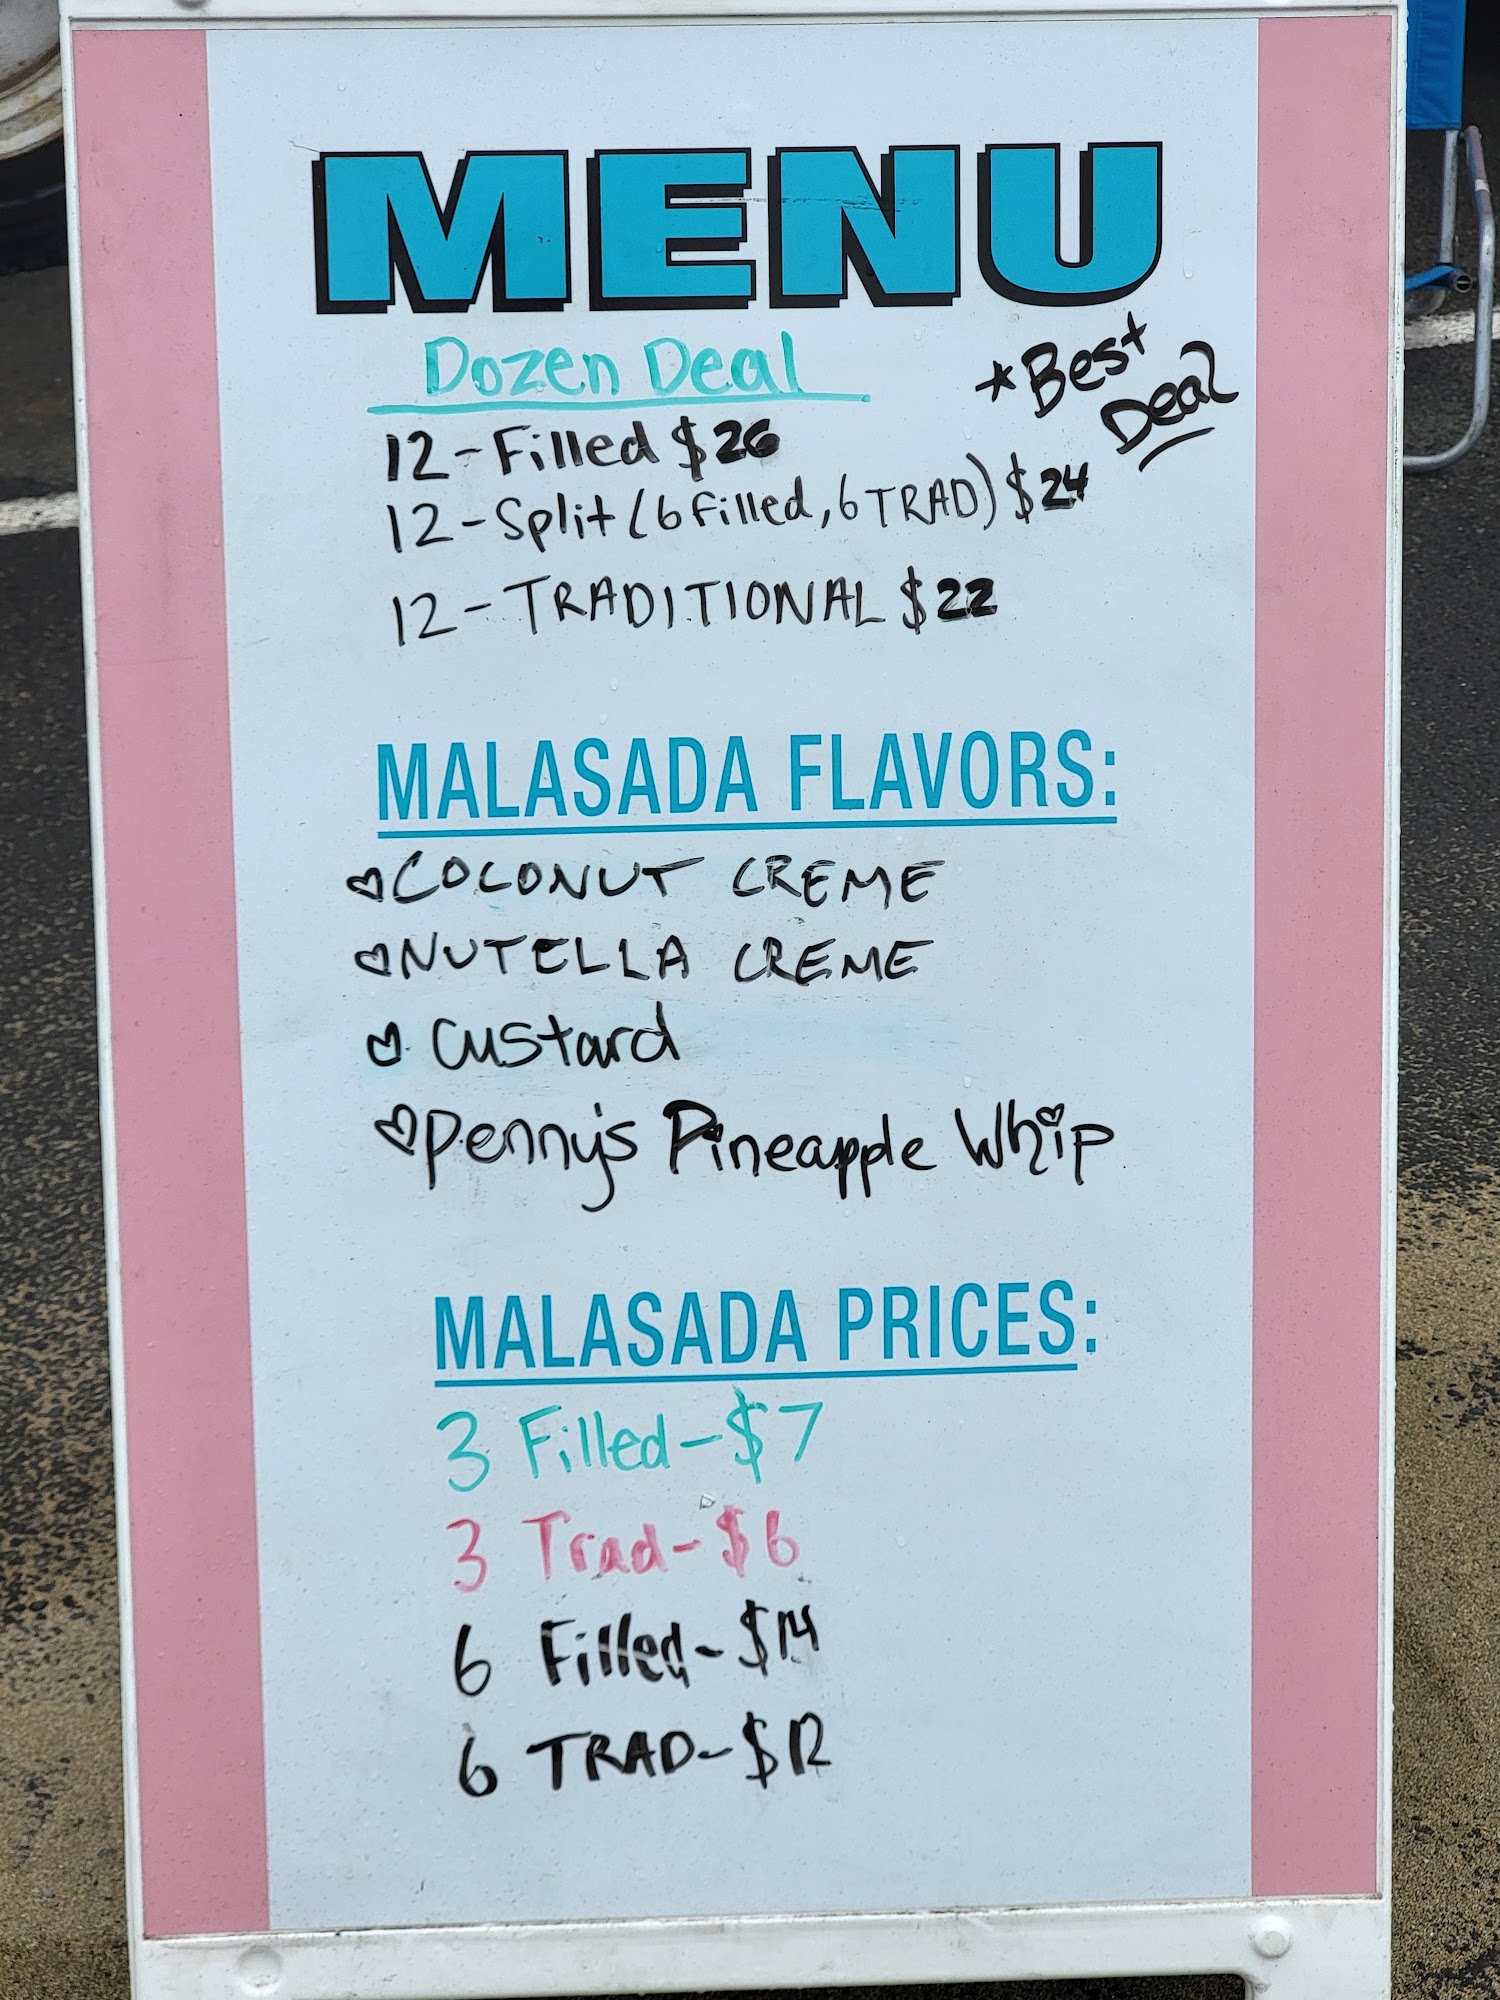 MENU
Dozen Deal
*Best
Deal
12-Filled $26
12-Split (6 Filled, 6 TRAD) $24
12-TRADITIONAL $22
MALASADA FLAVORS:
♡COCONUT CREME
♡NUTELLA CREME
♡ Custard
♡Penny's Pineapple Whip
MALASADA PRICES:
3 Filled-$7
3 Trad-$6
6 Filled-$14
6 TRAD-$12